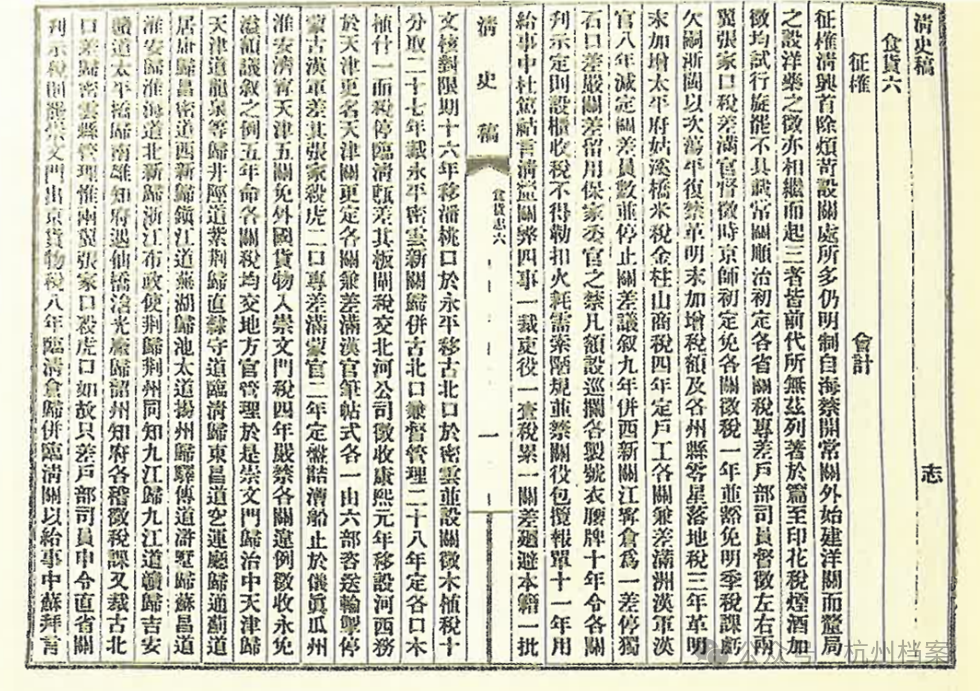 清史稿
志
食貨六
征榷
會計
征榷清興首除煩苛設關處所多仍明制自海禁開常關外始建洋關而釐局
之設洋藥之徵亦相繼而起三者皆前代所無茲列著於篇至印花稅煙酒加
徵均試行旋罷不具載常關順治初定各省關稅專差戶部司員督徵左右兩
翼張家口稅差滿官督徵時京師初定免各關徵稅一年並豁免明季稅課虧
欠嗣浙閩以次蕩平復禁革明末加增稅額及各州縣零星落地稅三年革明
末加增太平府姑溪橋米稅金柱山商稅四年定戶工各關兼差滿洲漢軍漢
官八年減定關差員數並停止關差議敘九年併西新關江寧倉為一差停獨
石口差嚴關差留用保家委官之禁凡額設巡攔各製號衣腰牌十年令各關
刋示定則設櫃收稅不得勒扣火耗需索陋規並禁關役包攬報單十一年用
給事中杜篤祜言清釐關弊四事一裁吏役一查稅累一關差廻避本籍一批
清史稿
食貨志六
一
文核對限期十六年移潘桃口於永平移古北口於密雲並設關徵木植稅十
分取二十七年裁永平密雲新關歸併古北口兼督管理二十八年定各口木
植什一而稅停臨清甎差其板閘稅交北河公司徵收康熙元年移設河西務
於天津更名天津關更定各關兼差滿漢官筆帖式各一由六部咨送輪掣停
蒙古漢軍差其張家殺虎二口專差滿蒙官二年定盤詰漕船止於儀眞瓜州
淮安濟寧天津五關免外國貨物入崇文門稅四年嚴禁各關違例徵收永免
溢額議敘之例五年命各關稅均交地方官管理於是崇文門歸治中天津歸
天津道龍泉等歸井陘道紫荆歸直隸守道臨清歸東昌道空運廳歸通薊道
居庸歸昌密道西新歸鎮江道蕪湖歸池太道揚州歸驛傳道滸墅歸蘇昌道
淮安歸淮海道北新歸浙江布政使荆歸荆州同知九江歸九江道贛歸吉安
贛道太平橋歸南雄知府遇仙橋浛光廠歸韶州知府各稽徵稅課又裁古北
口差歸密雲縣管理惟兩翼張家口殺虎口如故只差戶部司員申令直省關
刋示稅則罷崇文門出京貨物稅八年臨清倉歸併臨清關以給事中蘇拜言
公众号·杭州档案